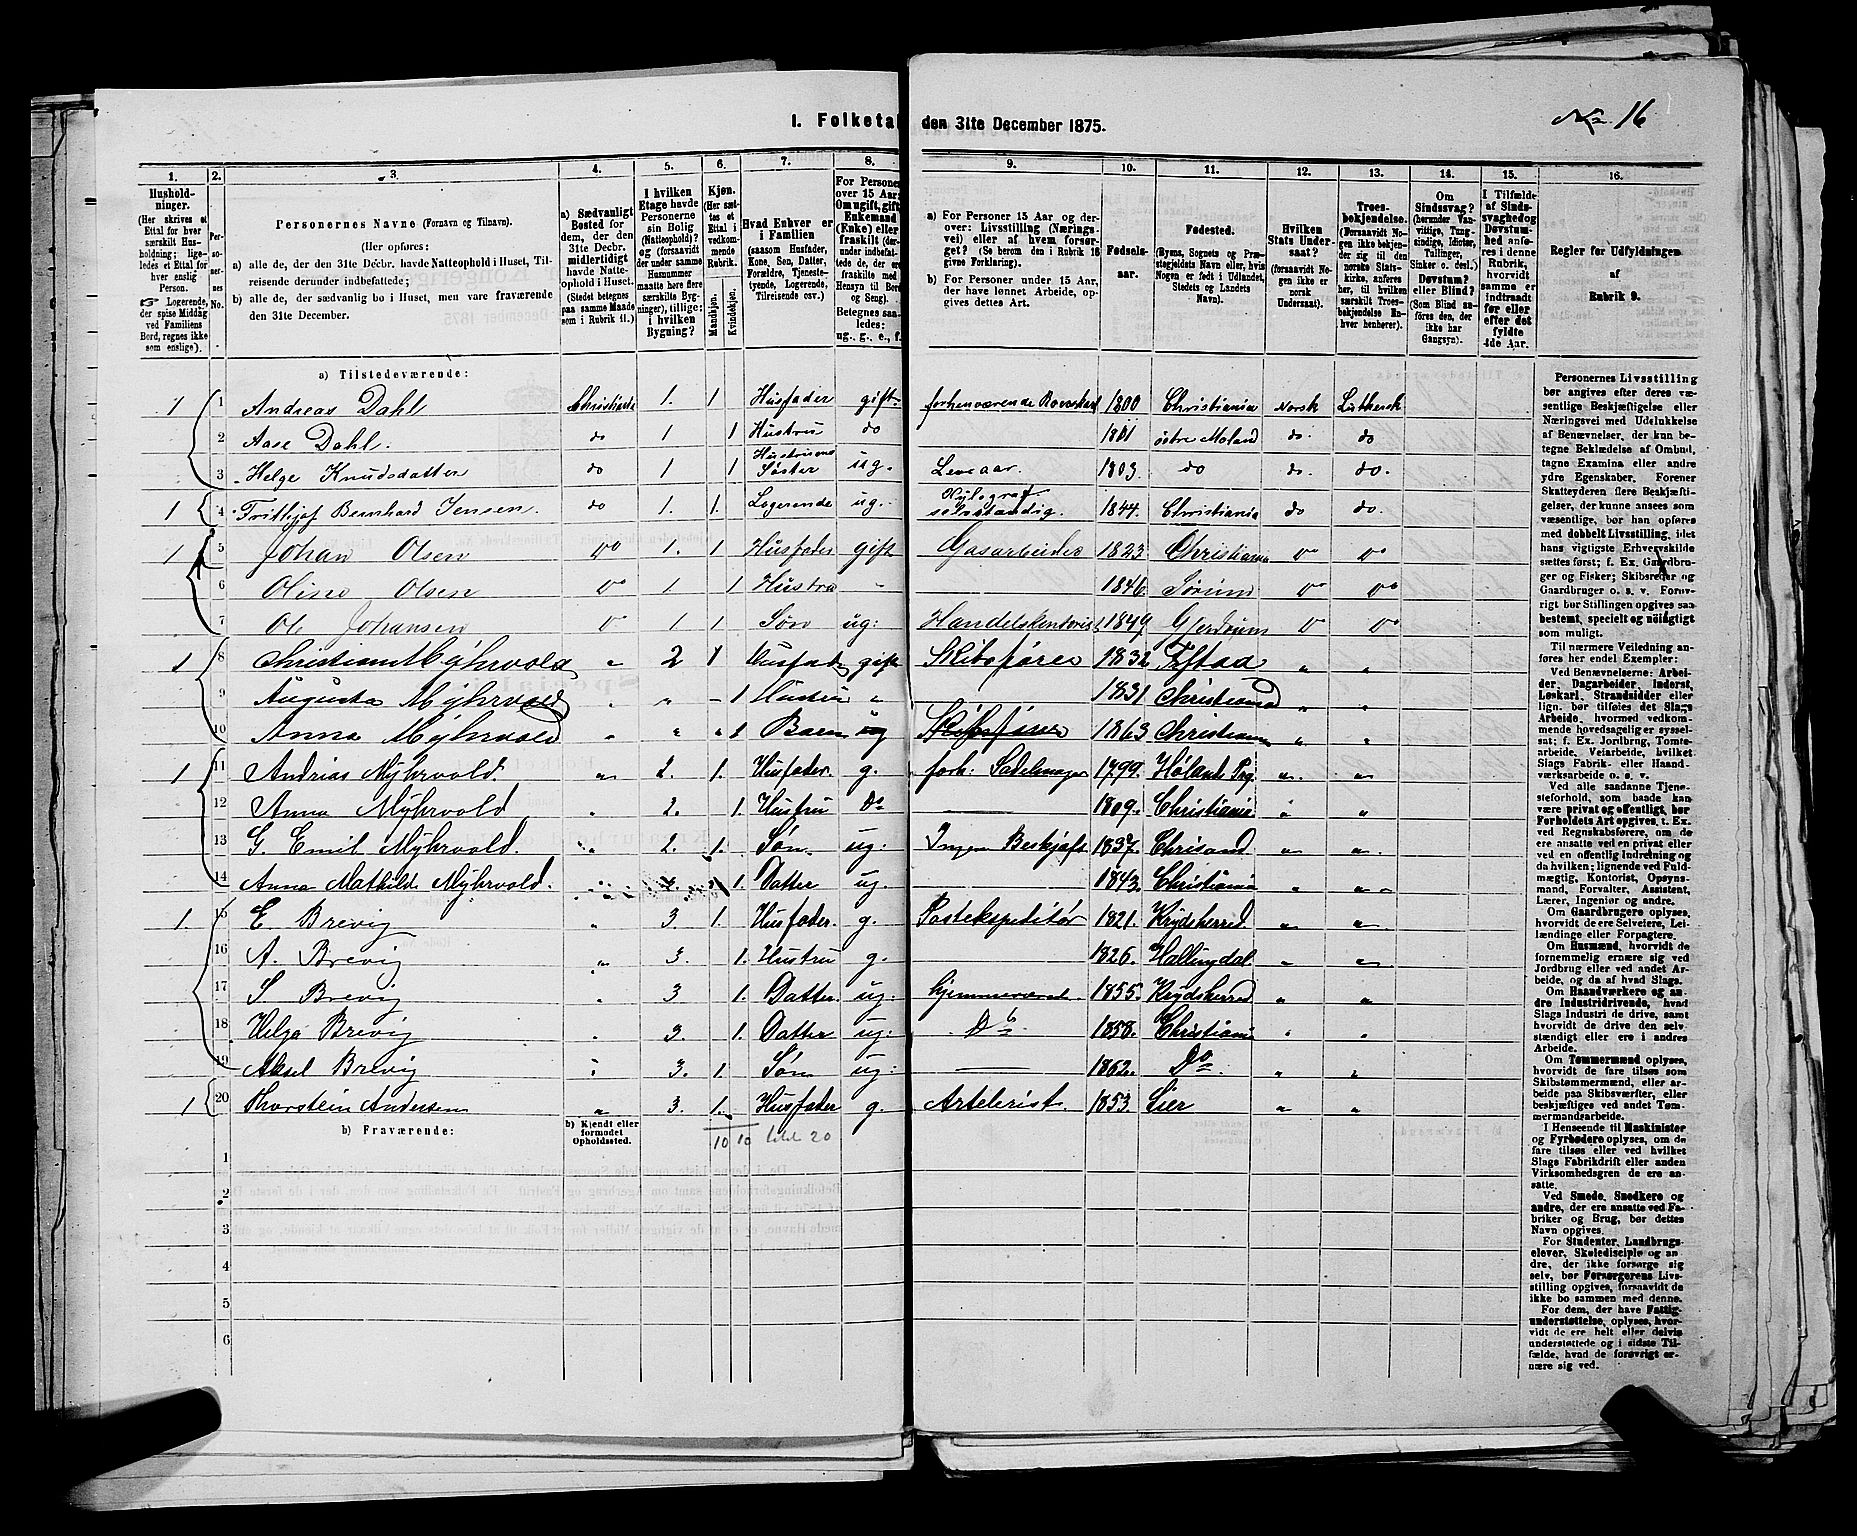 I. Folketal den 31te December 1875.
No. 16
1. 2. 3. 4. 5. 6. 7. 8. 9. 10. 11. 12. 13. 14. 15. 16.
Husholdninger. (Her skrives et Ettal for hver særskilt Husholdning; ligeledes et Ettal for hver enslig Person. Logerende, der spise Middag ved Familiens Bord, regnes ikke som enslige).
Personernes No.
Personernes Navne (Fornavn og Tilnavn).
(Her opføres:
a) alle de, der den 31te Decbr. havde Natteophold i Huset, Tilreisende derunder indbefattede;
b) alle de, der sædvanlig bo i Huset, men vare fraværende den 31te December.
a) Sædvanligt Bosted for dem, der den 31te Decbr. midlertidigt havde Natteophold i Huset. (Stedet betegnes paa samme Maade som i Rubrik 11.)
I hvilken Etage havde Personerne sin Bolig (Natteophold)? (forsaavidt der under samme Husnummer maatte høre flere særskilte Bygninger), tillige: i hvilken Bygning?
Kjøn. (Her sættes et Ettal i vedkommende Rubrik.
Mandkjøn. Kvindekjøn.
Hvad Enhver er i Familien (saasom Husfader, Kone, Søn, Datter, Forældre, Tjenestetyende, Logerende, Tilreisende osv.)
For Personer over 15 Aar: Om ugift, gift, Enkemand (Enke) eller fraskilt (derunder indbefattede de, der ere fraskilte med Hensyn til Bord og Seng). Betegnes saaledes: ug., g., e., f.
a) For Personer 15 Aar og derover: Livsstilling (Næringsvei) eller af hvem forsørget? (Se herom den i Rubrik 16 givne Forklaring).
b) For Personer under 15 Aar, der have lønnet Arbeide, opgives dettes Art.
Fødselsaar.
Fødested. (Byens, Sognets og Præstegjeldets Navn eller, hvis Nogen er født i Udlandet, Stedets og Landets Navn).
Hvilken Stats Undersaat? (forsaavidt Nogen ikke er norsk Undersaat).
Troesbekjendelse. (Forsaavidt Nogen ikke bekjender sig til den norske Statskirke, anføres her, til hvilken særskilt Troesbekjendelse Enhver henhører).
Om Sindssvag? (herunder Vanvittige, Tungsindige, Idioter, Tullinger, Sinker o. desl.) Døvstum? eller Blind? (Som Blind anføres den, der ikke har Gangsyn).
I Tilfælde af Sindssvaghed og Døvstumhed anføres i denne Rubrik, hvorvidt samme er indtraadt før eller efter det fyldte 4de Aar.
Regler for Udfyldningen af Rubrik 9.
a) Tilstedeværende:
1 1 Andreas Dahl Christiania 1. 1 Husfader gift. forhenværende 1800 Christiania Norsk Luthersk
2 Aase Dahl. do 1 1 Hustru do 1801 østre Moland do. do
3 Helge Knudsdatter do 1 1 Hustruens Søster ug. Leveaar. 1803 do do. do.
1 4 Frithjof Bernhard Jensen do 1. 1. Logerende ug. Xylograf selvstændig. 1844. Christiania do do.
1 5 Johan Olsen Do 1. 1 Husfader gift Gasarbeider 1823 Christiania Do Do
6 Oline Olsen Do 1 1 Hustru " 1846 Sørum Do Do
7 Ole Johansen Do 1 1 Søn ug: Handelskontorist 1849 Gjerdrum Do Do
1 8 Christian Mÿhrvold " 2 1 Husfader gift Skibsfører 1832 "  "
9 Augusta Mÿhrvold " " - 1 Hustru " 1831 Christiania " "
10 Anna Mÿhrvold " " " 1 Barn ug Skibsfører 1863 Christiania " "
1 11 Andrias Mÿhrvold. " 2. 1. Husfader. g. forh: Sadelmager 1799. Høland Prg. " "
12 Anna Mÿhrvold " 2. 1. Hustru Do 1809. Christiania " "
13 G. Emil Mÿhrvold. " 2. 1. Søn. ug: Ingen Beskjæft 1837. Chrisand " "
14 Anna Mathilde Mÿhrvold. " 2. 1. Datter ug. 1843. Christiania " "
1. 15 E. Brevig " 3. 1. Husfader. g. Postekspeditør 1821. Krydsherred " "
16 A. Brevig " 3. 1. Hustru g. 1826. Hallingdal " "
17 S Brevig " 3 1. Datter. ug. hjemmeværd. 1855. Krydsherred " "
18 Helga Brevig " 3. 1. Datter ug. Do 1858. Christiania " "
19 Aksel Brevig " 3. 1. Søn ug: 1862. Do " "
1 20 Thorstein Andersen " 3. 1. Husfader g. Artelerist. 1853. Lier " "
b) Fraværende:
b) Kjendt eller formodet Opholdssted.
10 10 20
1
2
3
4
5
6
Personernes Livsstilling bør angives efter deres væsentlige Beskjæftigelse eller Næringsvei med Udelukkelse af Benævnelser, der kun betegne Beklædelse af Ombud, tagne Examina eller andre ydre Egenskaber. Forener Skatteyderen flere Beskjæftigelser, der kunne ansees som væsentlige, bør han opføres med dobbelt Livsstilling, idet hans vigtigste Erhvervskilde sættes først; f. Ex. Gaardbruger og Fisker; Skibsreder og Gaardbruger o. s. v. Forøvrigt bør Stillingen opgives saa bestemt, specielt og nøiagtigt som muligt.
Til nærmere Veiledning anføres her endel Exempler:
Ved Benævnelserne: Arbeider, Dagarbeider, Inderst, Løskarl, Strandsidder eller lign. bør tilføies det Slags Arbeide, hvormed vedkommende hovedsagelig er sysselsat; f. Ex. Jordbrug, Tomtearbeide, Veiarbeide, hvilket Slags Fabrik- eller Haandværksarbeide o. s. v.
Ved alle saadanne Tjenesteforhold, som baade kan være privat og offentligt, bør Forholdets Art opgives, t. Ex. ved Regnskabsførere, om de ere ansatte ved en privat eller ved en offentlig Indretning og da hvilken; lignende ved Fuldmægtig, Kontorist, Opsynsmand, Forvalter, Assistent, Lærer, Ingeniør og andre.
Om Gaardbrugere oplyses, hvorvidt de ere Selveiere, Leilændinge eller Forpagtere.
Om Husmænd, hvorvidt de fornemmelig ernære sig ved Jordbrug eller ved andet Arbeide, og da af hvad Slags.
Om Haandværkere og andre Industridrivende, hvad Slags Industri de drive, samt hvorvidt de drive den selvstændigt eller ere i andres Arbeide.
Om Tømmermænd oplyses, hvorvidt de fare tilsøs som Skibstømmermænd, eller arbeide paa Skibsværfter, eller beskjæftiges ved andet Tømmermandsarbeide.
I Henseende til Maskinister og Fyrbødere oplyses, om de fare tilsøs eller ved hvilket Slags Fabrikdrift eller anden Virksomhedsgren de ere ansatte.
Ved Smede, Snedkere og andre, der ere ansatte ved Fabriker og Brug, bør dettes Navn opgives.
For Studenter, Landbrugselever, Skoledisciple og andre, der ikke forsørge sig selv, bør Forsørgerens Livsstilling opgives, forsaavidt de ikke bo sammen med denne.
For dem, der have Fattigunderstøttelse, oplyses, hvorvidt de ere helt eller delvis understøttede og i sidste Tilfælde, hvad de forøvrigt ernære sig ved.